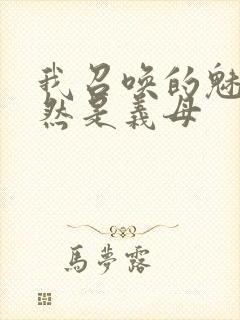 我召唤的魅
然是義母
馬夢露